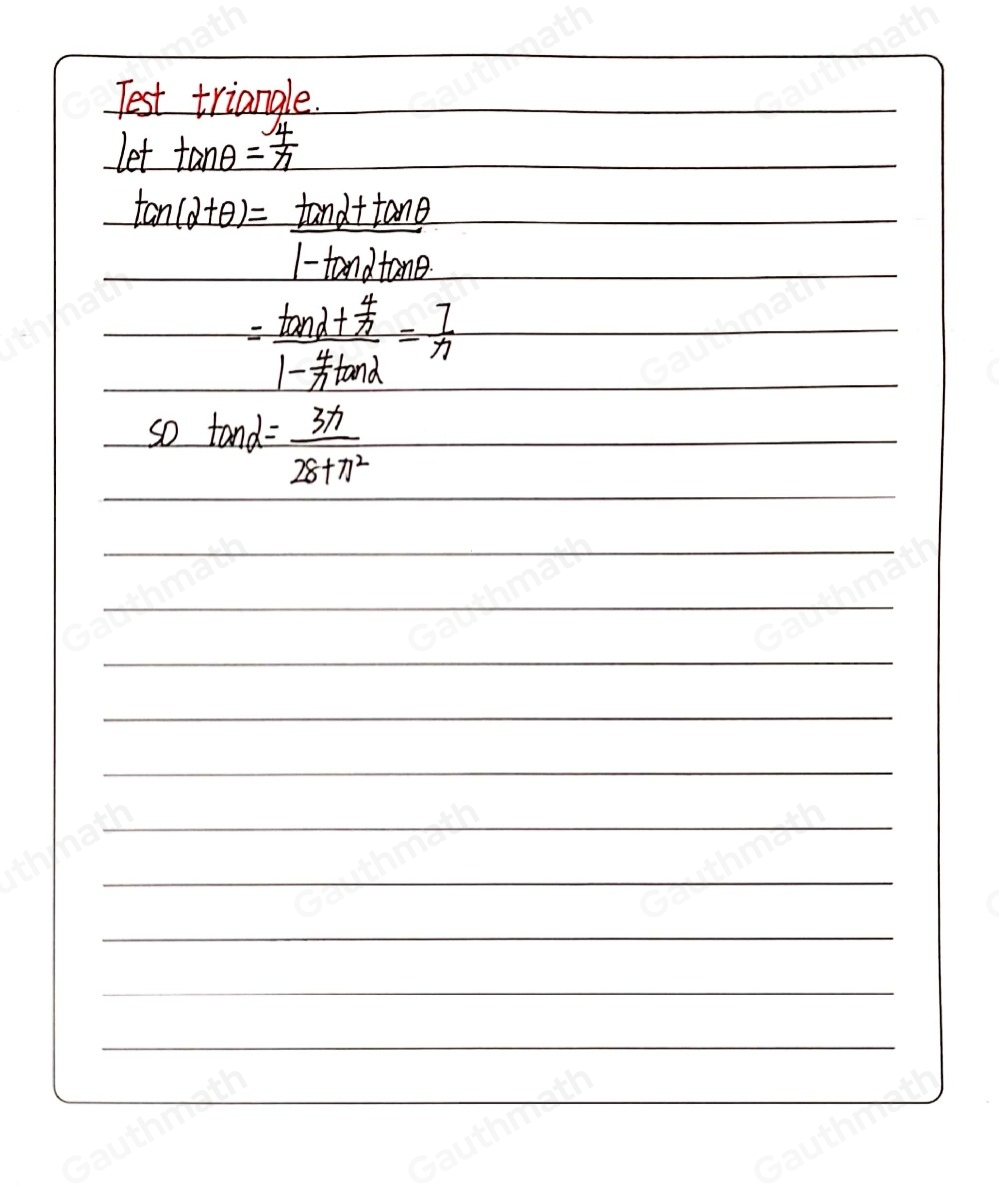 Test triangle.
let tanθ = 4/π
tan(α+θ) = (tanα + tanθ)/(1 - tanα tanθ).
= (tanα + 4/π)/(1 - 4/π tanα) = 7/π
so tanα = 3π/(28+π²)